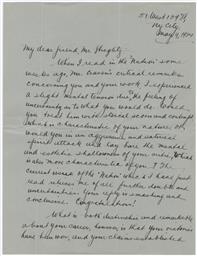 51 West 129 St
Ny City
May 9, 1924
My dear friend, Mr. Braithwaite
When I read in the "Nation" some
weeks ago, Mr. critical remarks
concerning you and your work, I experienced
a slight mental tension, the feeling of
uncertainty as to what you would do. Would
you treat him with stoical scorn and contempt
(which is characteristic of your nature), or
would you in an aggressive and satirical
attack and lay bare the mental
and aesthetic shallowness of your critic, (which
is also more characteristic of you)? The
current issue of the "Nation" which I have just
read relieves me of all further doubts and
uncertainties. Your reply is smashing and
conclusive. Congratulations!
What is both distinctive and remarkable
about your career, however, is that your victories
have been won, and your claims established